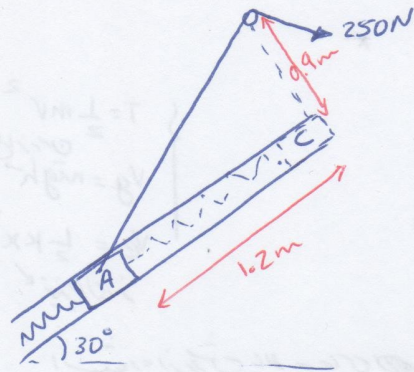 250N
0.9m
C
1.2m
A
30°